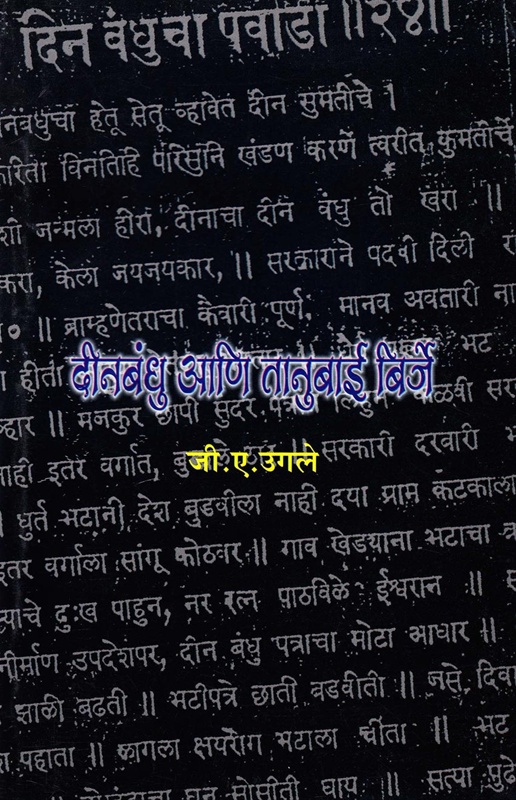 दिन बंधुचा पवाडा ॥२४॥
नबंधुचा हेतू सेतू व्हावेत दीन सुमतीचे ।
करिता विनंतिहि परिसुनि खंडण करणें त्वरीत कुमतीचें
शी जन्मला हीरा, दीनाचा दीन बंधु तो खरा ॥
करा, केला जयजयकार, ॥ सरकाराने पदवी दिली
॥ ब्राम्हणेतराचा कैवारी पूर्ण, मानव अवतारी ना
हीता भट
दीनबंधु आणि तानुबाई बिर्जे
॥ मजकुर छापी सुंदर सर
जी.ए.उगले
नाही इतर वर्गात, सरकारी दरबारी
धुर्त भटानी, देश बुडवीला नाही दया प्राम कंटकाला
इतर वर्गाला सांगू कोठवर ॥ गाव खेडयाना भटाचा
त्याचे दुःख पाहुन, नर रत्न पाठविके ईश्वरान ॥
नीर्माण उपदेशपर, दीन बंधु पत्राचा मोटा आधार ॥
झाली बढती ॥ भटीपत्रे छाती बडवीती ॥ जसे दिवा
पहाता ॥ लागला क्षयरोग भटाला चींता ॥ भट
घन सोसीती घाय ॥ सत्या पुढे